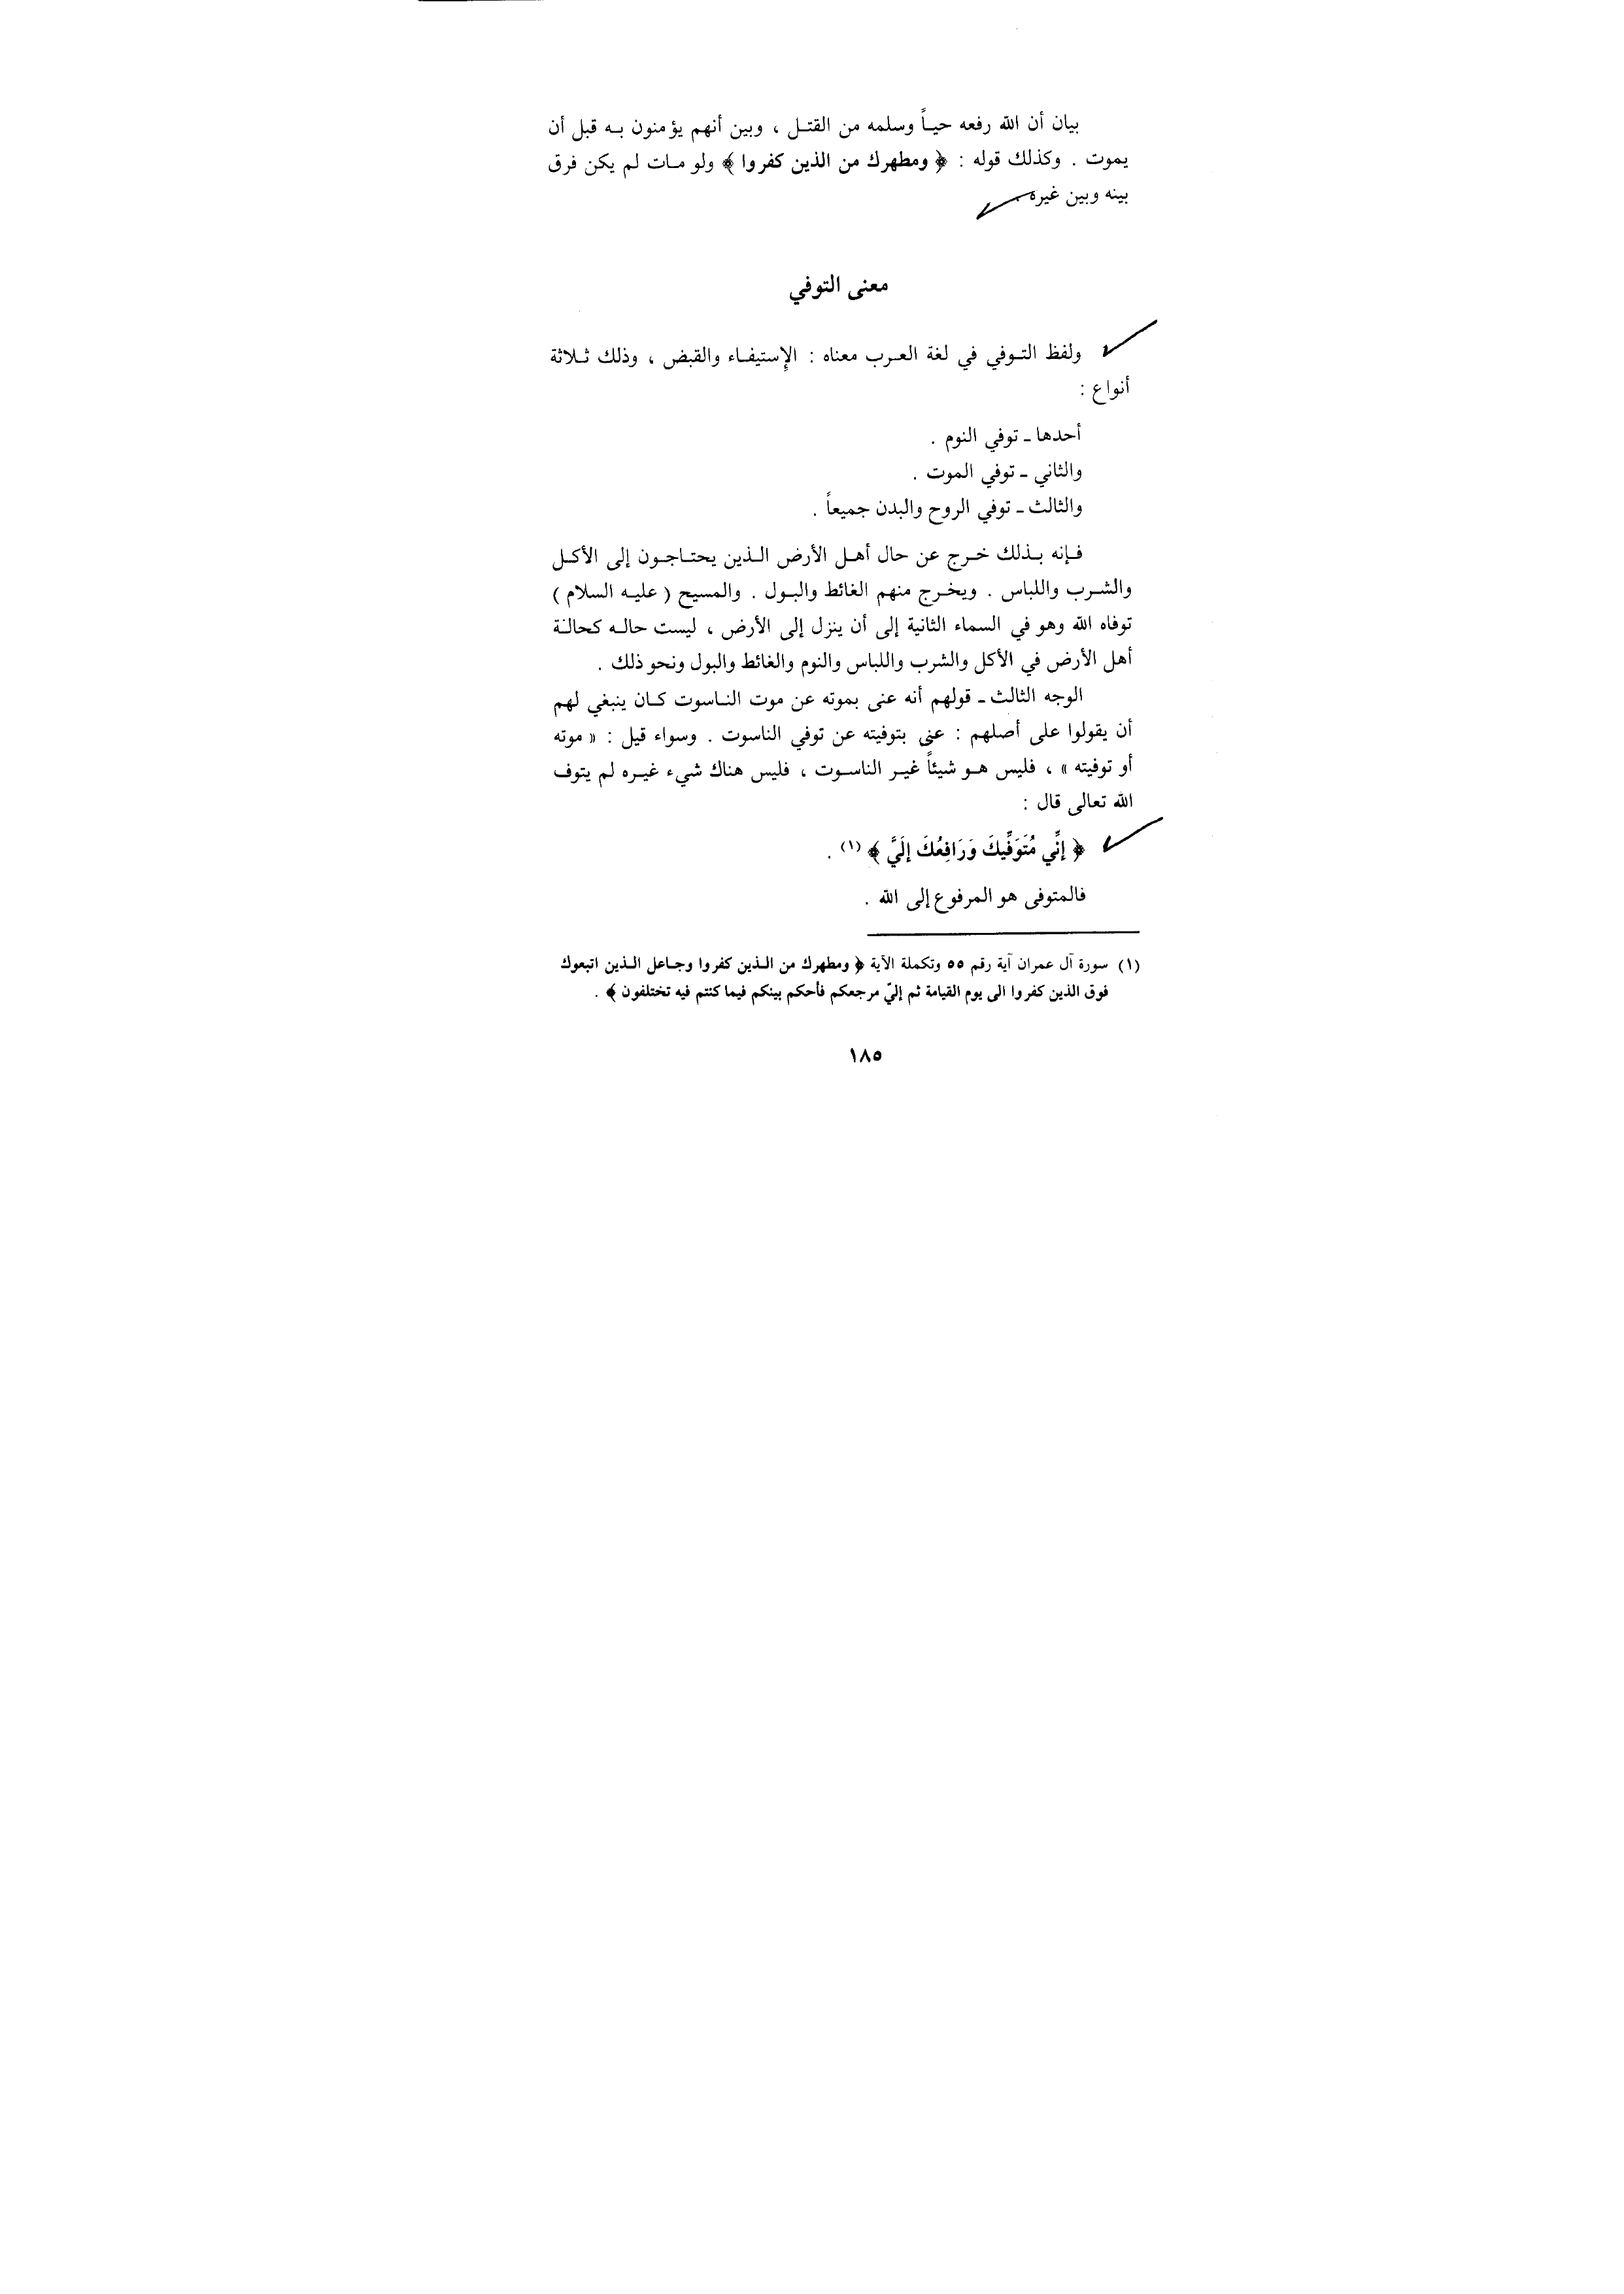 بيان أن الله رفعه حيـاً وسلمه من القتـل ، وبين أنهم يؤمنون بـه قبل أن
يموت . وكذلك قوله : ﴿ ومطهرك من الذين كفروا ﴾ ولو مـات لم يكن فرق
بينه وبين غيره .
معنى التوفي
ولفظ التـوفي في لغة العـرب معناه : الإستيفـاء والقبض ، وذلك ثـلاثة
أنواع :
أحدها ـ توفي النوم .
والثاني ـ توفي الموت .
والثالث ـ توفي الروح والبدن جميعاً .
فـإنه بـذلك خـرج عن حال أهـل الأرض الـذين يحتـاجـون إلى الأكـل
والشـرب واللباس . ويخـرج منهم الغائط والبـول . والمسيح ( عليـه السلام )
توفاه الله وهو في السماء الثانية إلى أن ينزل إلى الأرض ، ليست حالـه كحالـة
أهل الأرض في الأكل والشرب واللباس والنوم والغائط والبول ونحو ذلك .
الوجه الثالث ـ قولهم أنه عنى بموته عن موت النـاسوت كـان ينبغي لهم
أن يقولوا على أصلهم : عنى بتوفيته عن توفي الناسوت . وسواء قيل : « موته
أو توفيته » ، فليس هـو شيئاً غيـر الناسـوت ، فليس هناك شيء غيـره لم يتوف
الله تعالى قال :
﴿ إنِّي مُتَوَفِّيكَ وَرَافِعُكَ إلَيَّ ﴾ (١) .
فالمتوفى هو المرفوع إلى الله .
(١) سورة آل عمران آية رقم ٥٥ وتكملة الآية ﴿ ومطهرك من الـذين كفروا وجـاعل الـذين اتبعوك
فوق الذين كفروا الى يوم القيامة ثم إليّ مرجعكم فأحكم بينكم فيما كنتم فيه تختلفون ﴾ .
١٨٥